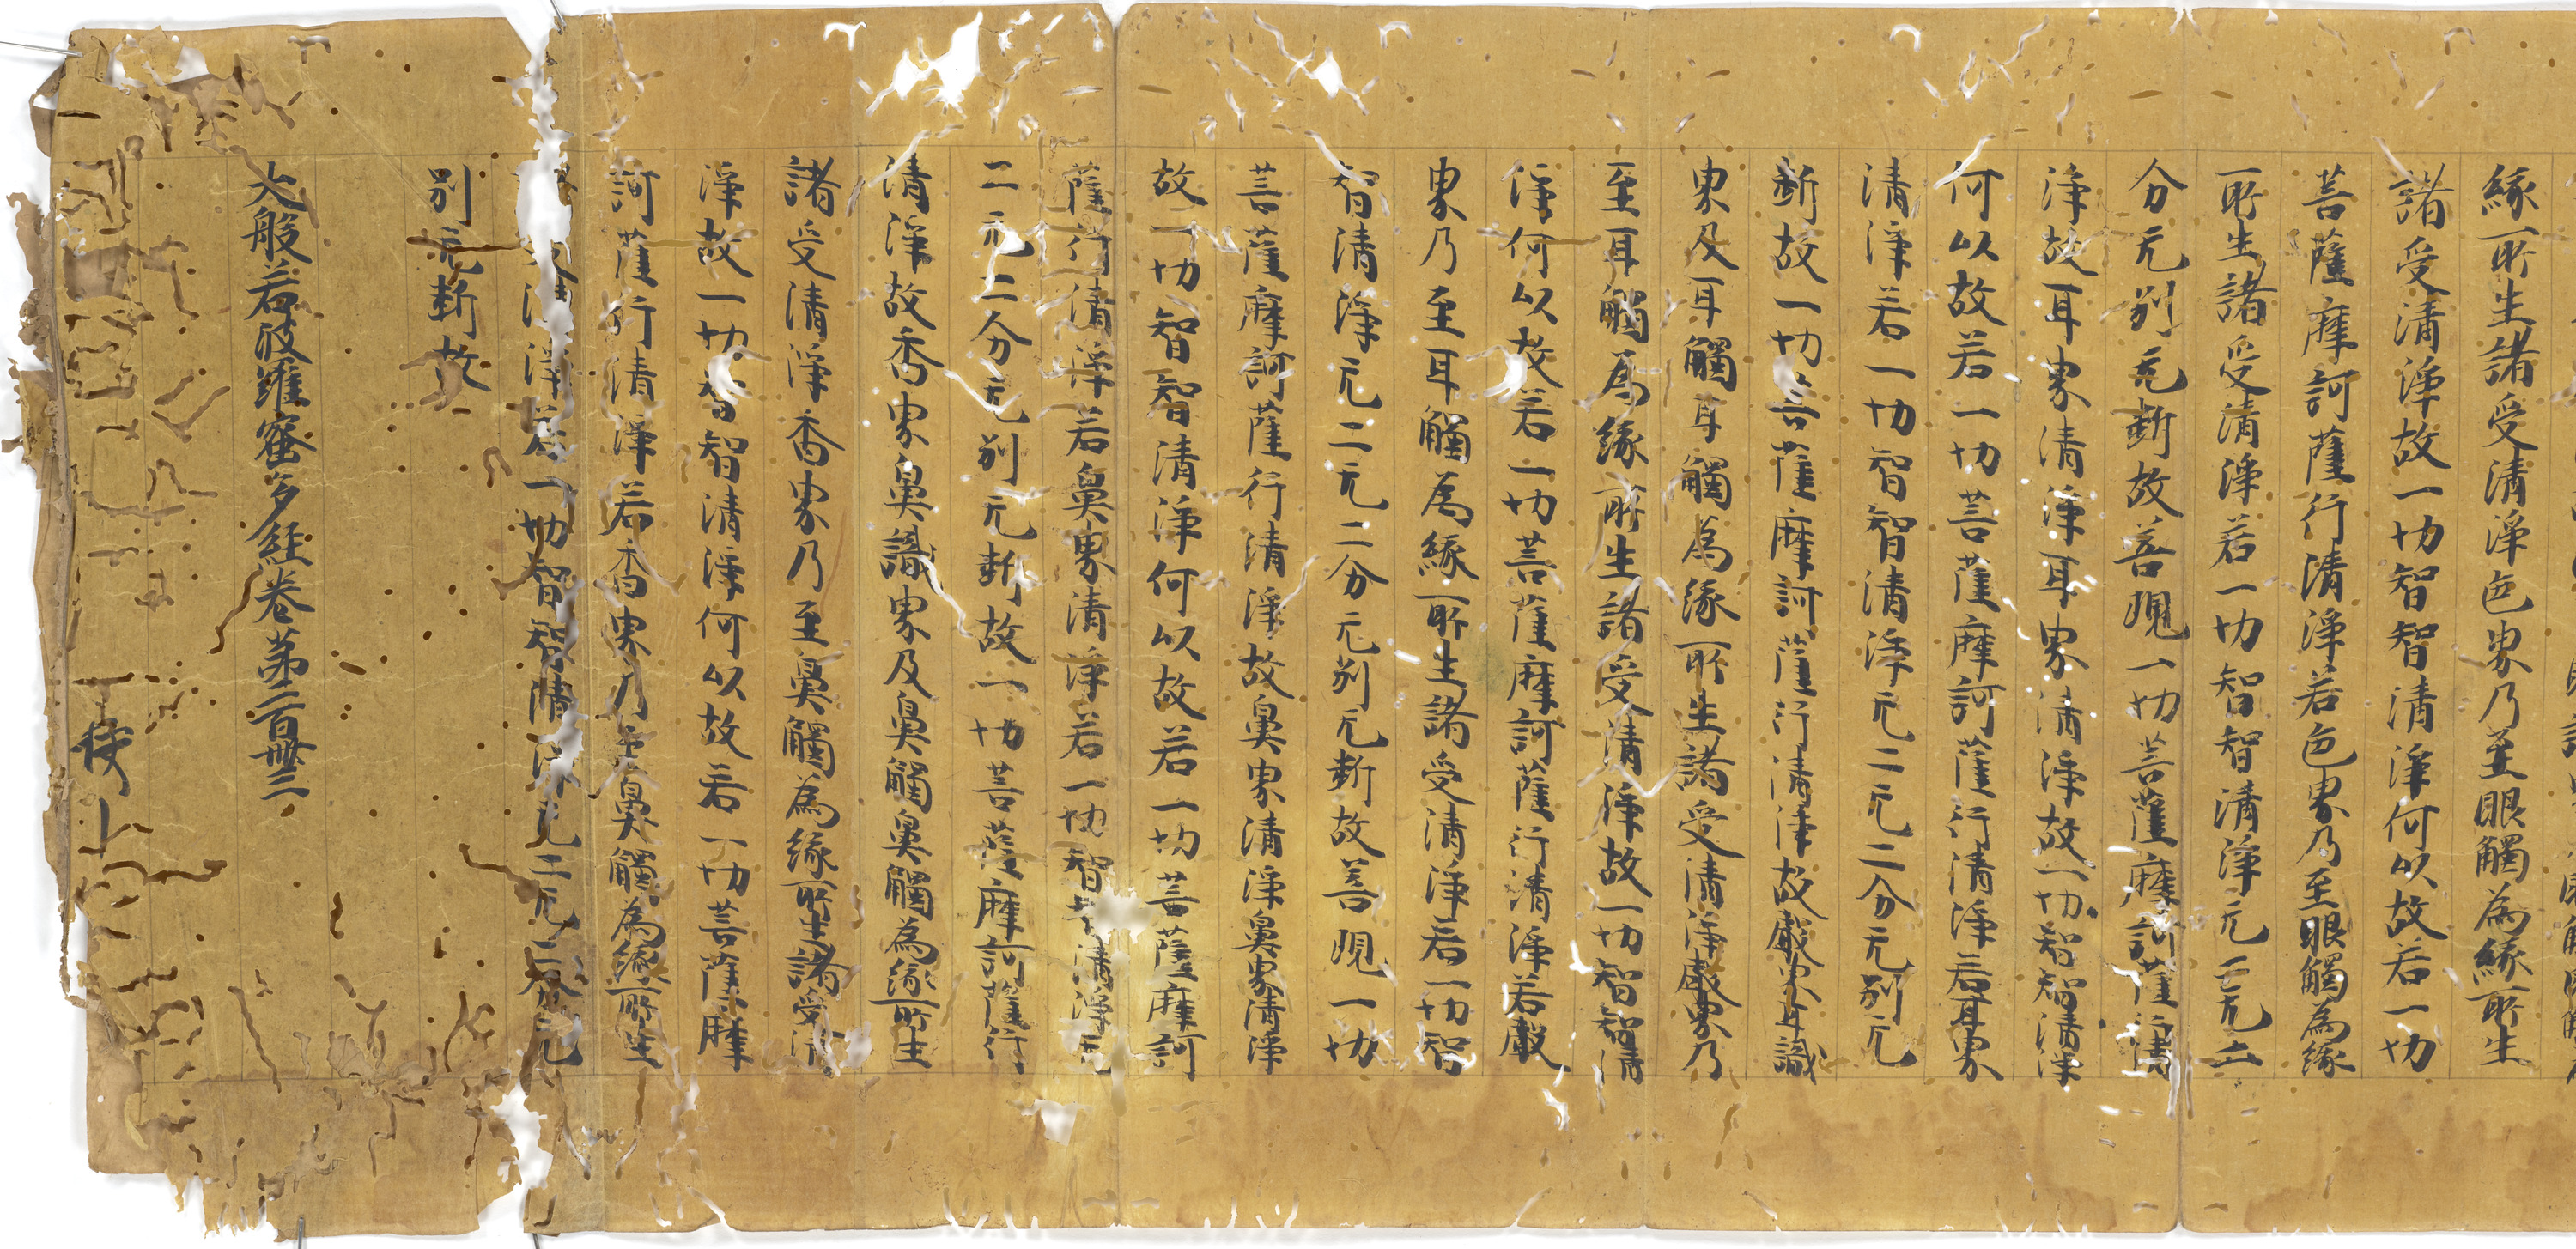 緣所生諸受清淨色界乃至眼觸為緣所生
諸受清淨故一切智智清淨何以故若一切
菩薩摩訶薩行清淨若色界乃至眼觸為緣
所生諸受清淨若一切智智清淨无二无二
分无別无斷故善現一切菩薩摩訶薩行清
淨故耳界清淨耳界清淨故一切智智清淨
何以故若一切菩薩摩訶薩行清淨若耳界
清淨若一切智智清淨无二无二分无別无
斷故一切菩薩摩訶薩行清淨故聲界耳識
界及耳觸耳觸為緣所生諸受清淨聲界乃
至耳觸為緣所生諸受清淨故一切智智清
淨何以故若一切菩薩摩訶薩行清淨若聲
界乃至耳觸為緣所生諸受清淨若一切智
智清淨无二无二分无別无斷故善現一切
菩薩摩訶薩行清淨故鼻界清淨鼻界清淨
故一切智智清淨何以故若一切菩薩摩訶
薩行清淨若鼻界清淨若一切智智清淨无
二无二分无別无斷故一切菩薩摩訶薩行
清淨故香界鼻識界及鼻觸鼻觸為緣所生
諸受清淨香界乃至鼻觸為緣所生諸受清
淨故一切智智清淨何以故若一切菩薩摩
訶薩行清淨若香界乃至鼻觸為緣所生
受清淨若一切智智清淨无二无二分无
別无斷故
大般若波羅蜜多經卷第二百卌三